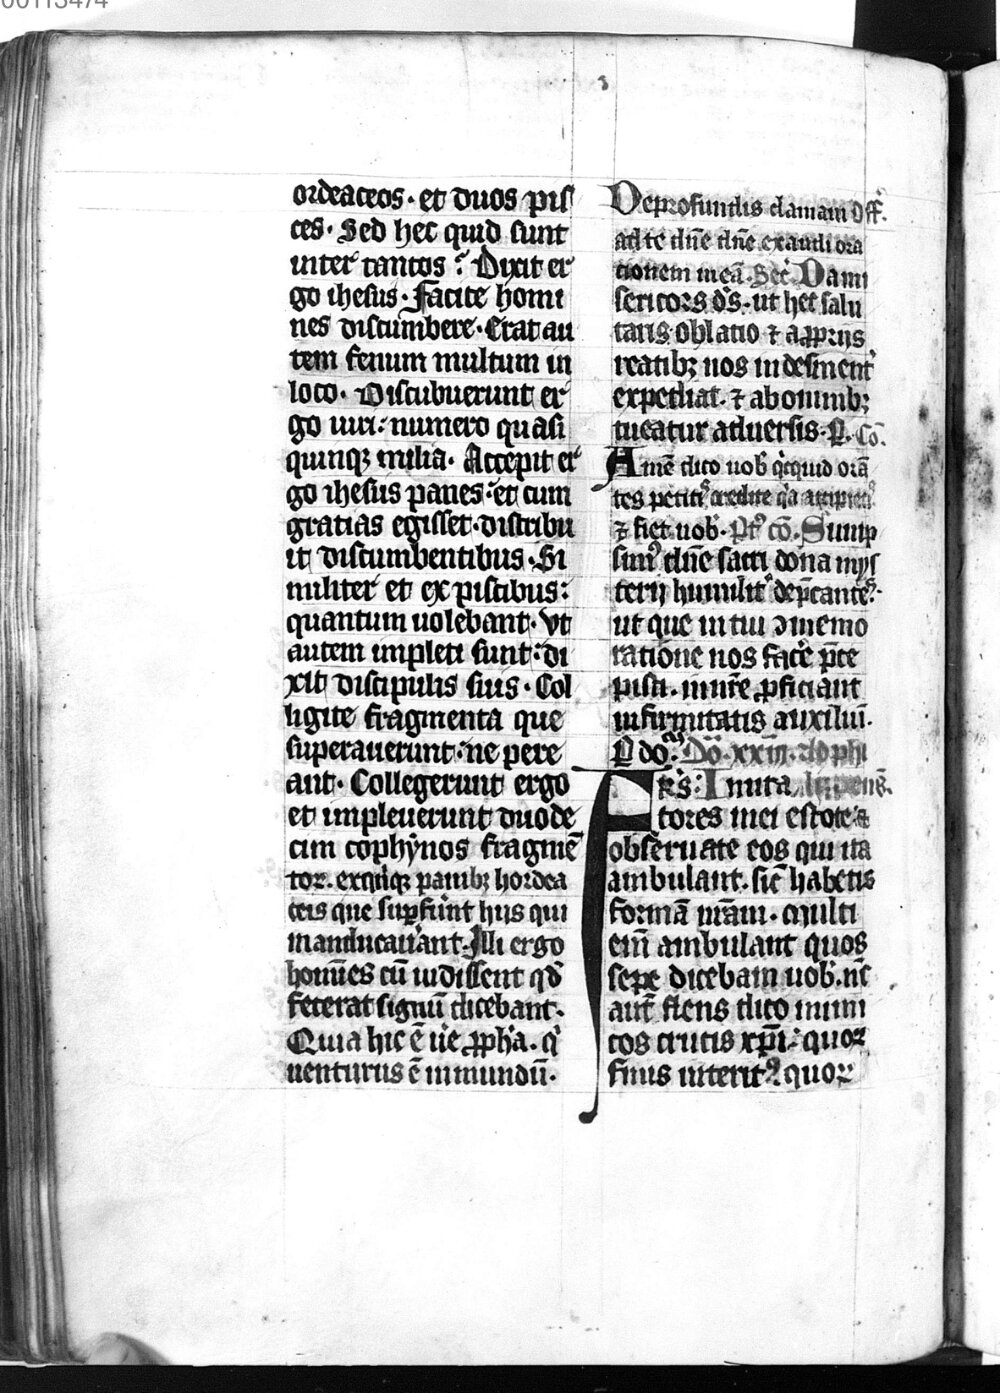 00113474
ordeaceos · et duos pis
ces · Sed hec quid sunt
inter tantos ? Dixit er
go ihesus · Facite homi
nes discumbere · Erat au
tem fenum multum in
loco · Discubuerunt er
go uiri : numero quasi
quinqꝫ milia · Accepit er
go ihesus panes : et cum
gratias egisset · distribu
it discumbentibus · Si
militer et ex piscibus :
quantum uolebant · Vt
autem impleti sunt : di
xit discipulis suis · Col
ligite fragmenta que
superauerunt · ne pere
ant · Collegerunt ergo
et impleuerunt duode
cim cophynos fragmē
toꝝ · ex qͥnqꝫ panibꝫ hordea
ceis que suꝑfūnt hijs qui
manducauāant · Illi ergo
homīes cū uidissent qđ
fecerat signū dicebant ·
Quia hic ē ūe ꝓpħa · qͥ
uenturus ē in mundū ·
De profundis clamaui Off̄
ad te dn̄e dn̄e exaudi ora
tionem meā · Secͬ Da mi
sericors ds̄ · ut hec salu
taris oblatio ⁊ a ꝓprijs
reatibꝫ nos indesinent͛
expediat · ⁊ ab omnibꝫ
tueatur aduersis · P · Cō ·
Amē dico uob̄ qͥcquid orā
tes petitis credite qͥa accipietis
⁊ fiet uob̄ · Pt͛ cō · Sump
simꝰ dn̄e sacri dona mys
terij humilit͛ dep̄cantes ·
ut que in tui ↄmemo
ratione nos fac̄e p̄ce
pisti · in nr̄e ꝓficiant
infirmitatis auxiliū ·
P dō · Dō · xxiii · ad phi
Fr̄s : Imita lipens̄ ·
tores mei estote · ⁊
obseruate eos qui ita
ambulant · sic̄ habetis
formā nr̄am · Multi
eni̅ ambulant quos
sepe dicebam uob̄ · nc̄
aut̄ flens dico inimi
cos crucis xp̄i · quoꝝ
finis interitꝰ · quoꝝ